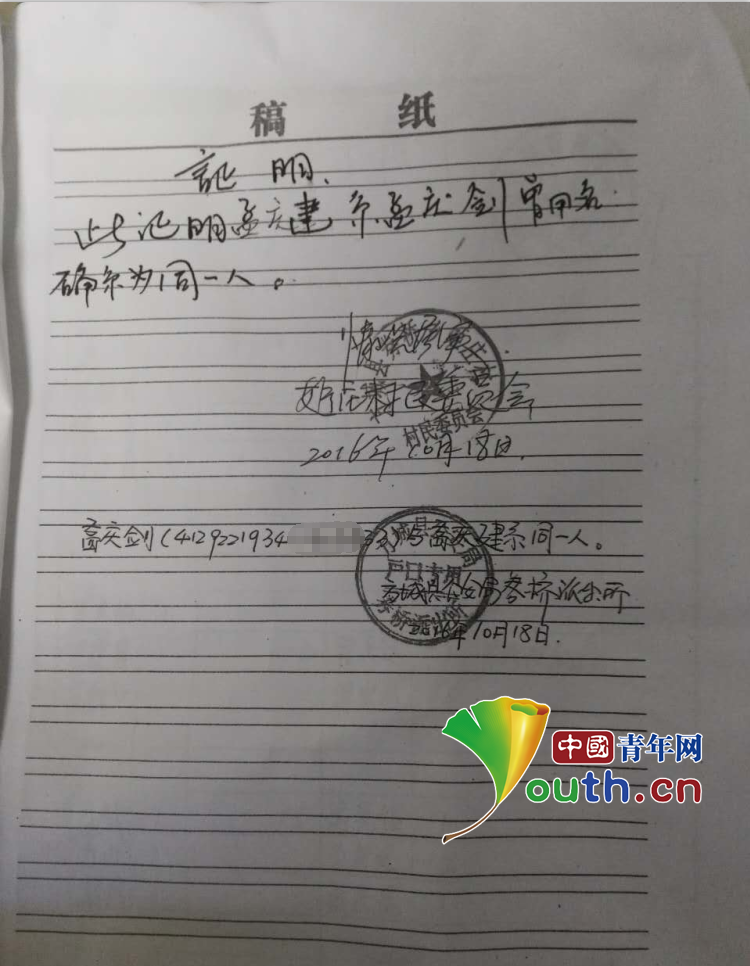 稿 纸
記 明.
此记明孟庆建系孟庆剑曾用名
确系为同一人。
情况属实
村民委员会
村民委员会
2016年10月18日.
庆剑(4129221934 33)与 庆建系同一人。
户口专用
西城县公安局 桥派出所
桥派出所
2016年10月18日.
中國青年网
Youth.cn